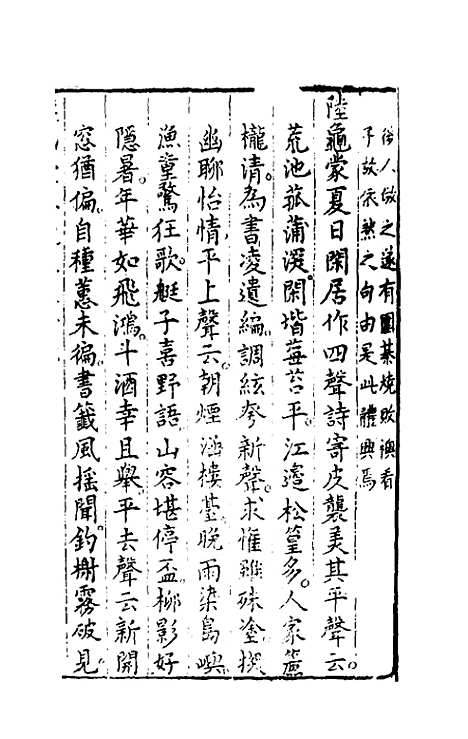 俗人倣之遂有圍棊燒敗襖看
子故依然之句由是此體興焉
陸龜蒙夏日閑居作四聲詩寄皮襲美其平聲云
荒池菰蒲深閑堦莓苔平江邊松篁多人家簾
櫳清為書凌遺編調絃夸新聲求懽雖殊塗探
幽聊怡情平上聲云朝煙涵樓臺晚雨染島嶼
漁童驚狂歌艇子喜野語山容堪停盃栁影好
隱暑年華如飛鴻斗酒幸且舉平去聲云新開
窓猶偏自種蕙未徧書籤風摇聞釣榭霧破見